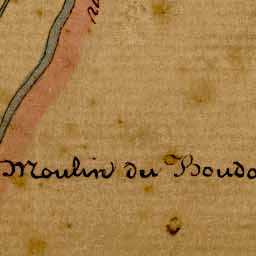 Moulin du Boudo